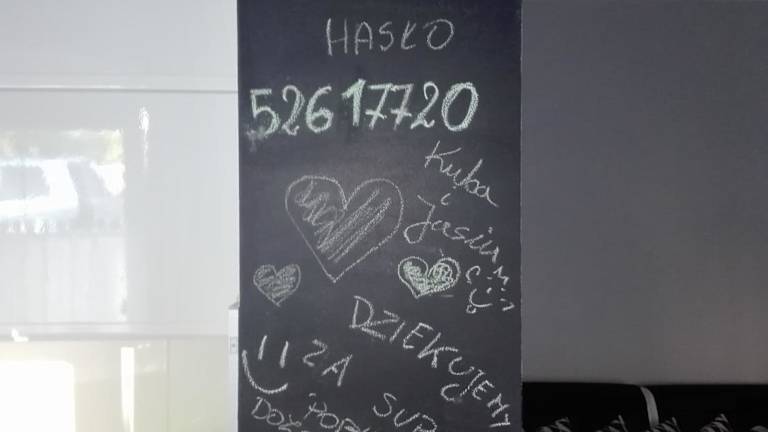 HASŁO
52617720
Kuba
i
Jasiu
DZIĘKUJEMY
ZA SUP